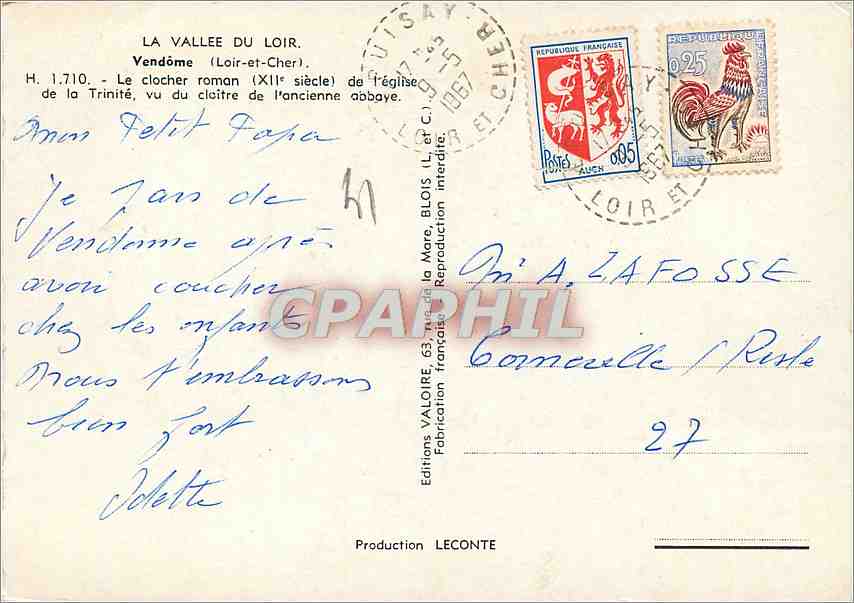 LA VALLEE DU LOIR.
Vendôme (Loir-et-Cher).
H. 1.710. - Le clocher roman (XIIe siècle) de l'église
de la Trinité, vu du cloître de l'ancienne abbaye.
Mon Petit Papa
Je pars de
Vendome après
avoir coucher
chez les enfants
Nous t'embrassons
bien fort
Odette
Editions VALOIRE, 63, rue de la Mare, BLOIS (L. et C.)
Fabrication française - Reproduction interdite.
Production LECONTE
OUISAY - CHER
9-5
1967
LOIR ET
REPUBLIQUE FRANÇAISE
POSTES
0,05
AUCH
REPUBLIQUE FRANÇAISE
0,25
1967
LOIR ET CH
Mr A. LAFOSSE
Corneville / Risle
27
CPAPHIL